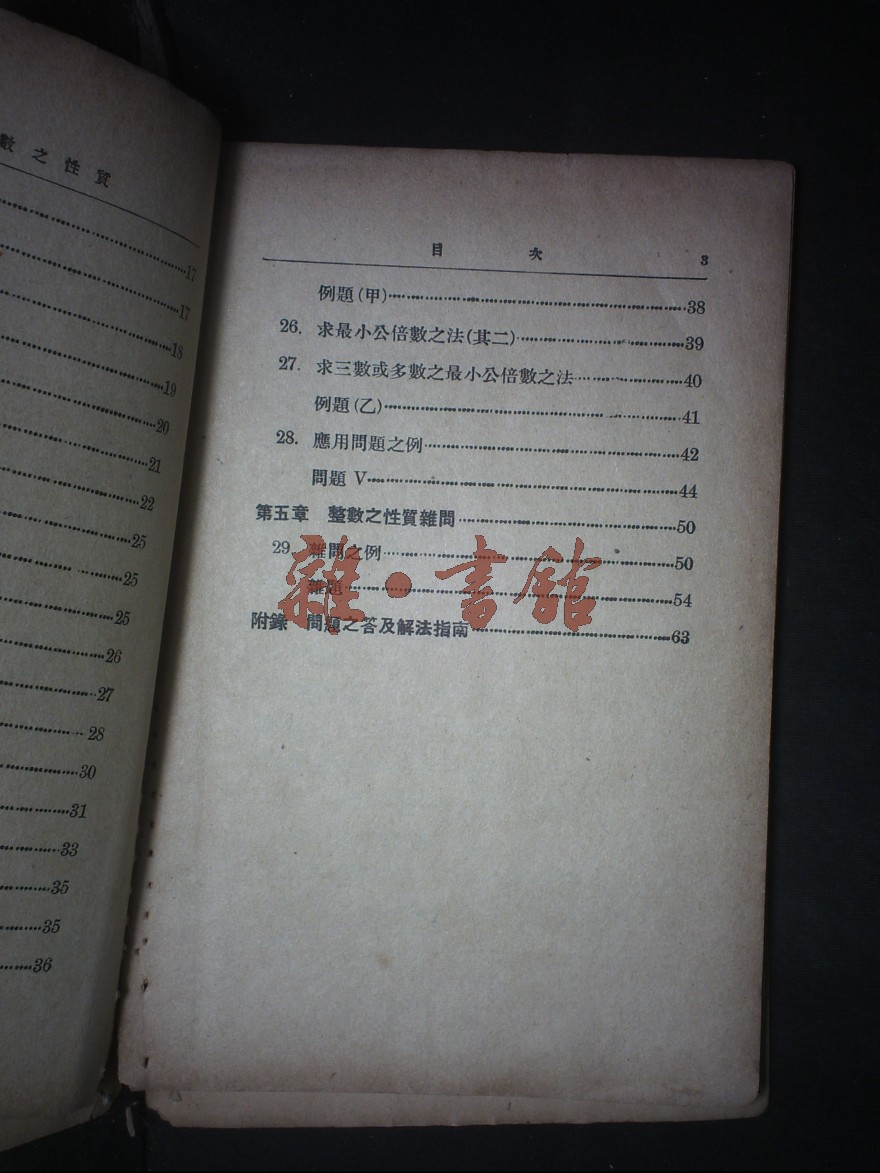 數之性質
17
17
18
19
20
21
22
25
25
25
26
27
28
30
31
33
35
35
36
目 次 3
例題(甲)……38
26. 求最小公倍數之法(其二)……39
27. 求三數或多數之最小公倍數之法……40
例題(乙)……41
28. 應用問題之例……42
問題 V……44
第五章 整數之性質雜問……50
29. 雜問之例……50
雜題……54
附錄 問題之答及解法指南……63
雜·書館